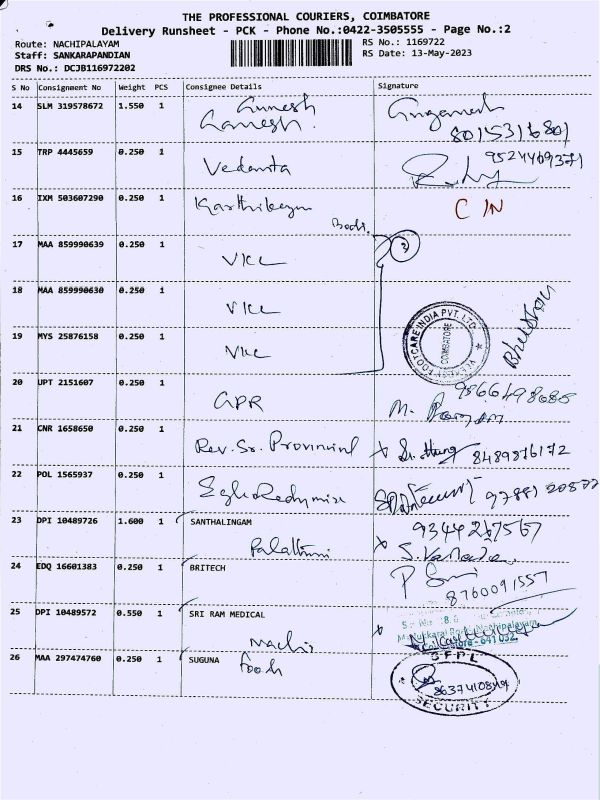 THE PROFESSIONAL COURIERS, COIMBATORE
Delivery Runsheet - PCK - Phone No.:0422-3505555 - Page No.:2
Route: NACHIPALAYAM
RS No.: 1169722
Staff: SANKARAPANDIAN
RS Date: 13-May-2023
DRS No.: DCJB116972202
S No Consignment No Weight PCS Consignee Details Signature
14 SLM 319578672 1.550 1 Ganesh
8015316801
15 TRP 4445659 0.250 1 Vedanta
9524469371
16 IXM 503607290 0.250 1 Karthikeyan
C IN
17 MAA 859990639 0.250 1 VKC
3
18 MAA 859990630 0.250 1 VKC
19 MYS 25876158 0.250 1 VKC
FOOTCARE INDIA PVT. LTD.
COIMBATORE
20 UPT 2151607 0.250 1 GPR
21 CNR 1658650 0.250 1 Rev. Sr. Provincial
8489876172
22 POL 1565937 0.250 1
23 DPI 10489726 1.600 1 SANTHALINGAM
9344267567
24 EDQ 16601383 0.250 1 BRITECH
8760091557
25 DPI 10489572 0.550 1 SRI RAM MEDICAL
Nachi
26 MAA 297474760 0.250 1 SUGUNA
food
SFPL
SECURITY